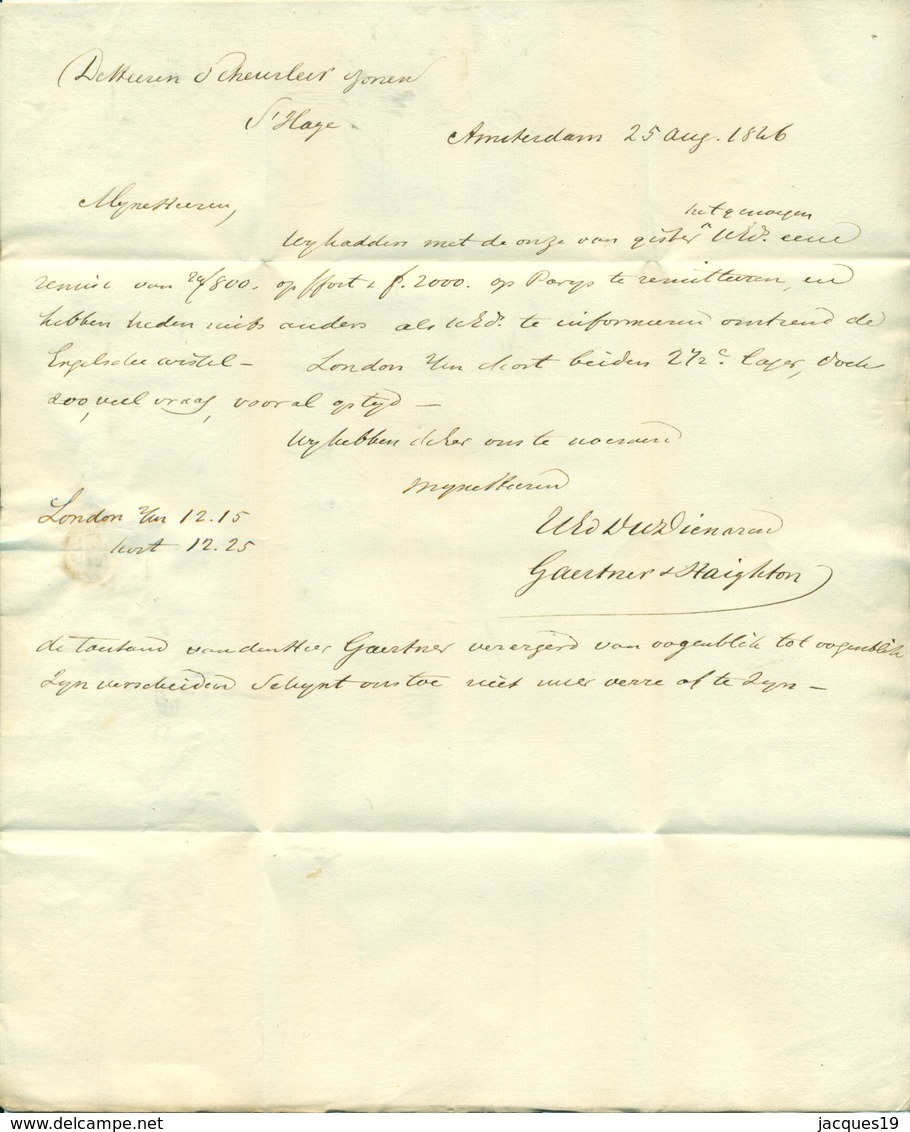 De Heeren Scheurleer Zonen
S'Hage
Amsterdam 25 Aug. 1846
Myne Heeren,
het genoegen
Wy hadden met de onze van gister UEd. eene
remise van 800. op ffort & f. 2000. op Parys te remitteren, en
hebben heden niets anders als UEd. te informeren omtrend de
Engelsche wissel — London 2/m & kort beiden 2 1/2 c. lager, doch
zoo veel vraag, vooral op tyd —
Wy hebben de Eer ons te noemen
Myne Heeren
London 2/m 12.15
kort 12.25
UEd DW Dienaren
Gaertner & Haighton
de toestand van den Heer Gaertner verergerd van oogenblik tot oogenblik
Zyn verscheiden Schynt ons toe niet meer verre af te Zyn —
jacques19
delcampe.net